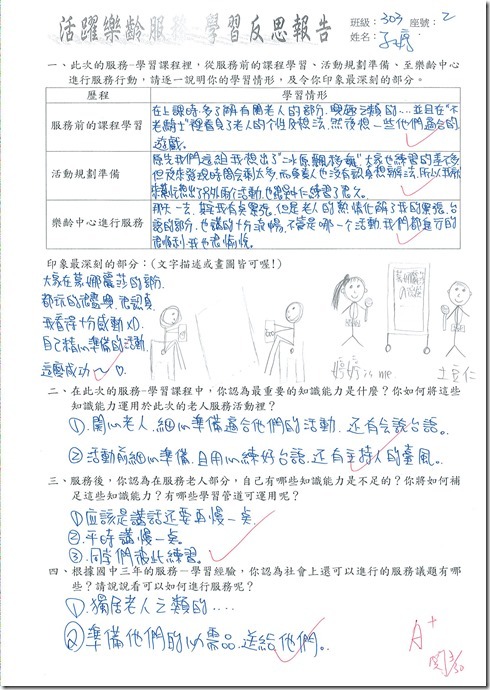 活躍樂齡服務-學習反思報告
班級：303 座號：2
姓名：
一、此次的服務-學習課程裡，從服務前的課程學習、活動規劃準備、至樂齡中心
進行服務行動，請逐一說明你的學習情形，及令你印象最深刻的部分。
歷程
學習情形
服務前的課程學習
在上課時，多了解有關老人的部分，興趣之類的....並且在"不
老騎士"裡看見了老人的个性及想法，然後想一些他們適合的
遊戲。
活動規劃準備
大家也練習的差不多
但後來發現時間會剩太多，
另外兩个活動，
樂齡中心進行服務
那天一去，其實我有点緊張，但是老人的熱情化解了我的緊張，台
語的部分，也講的十分流暢，不管是哪一个活動，我們都進行的
很順利，我也很愉悅。
印象最深刻的部分：(文字描述或畫圖皆可喔!)
大家在蒙娜麗莎的部分
都玩的很盡興，很認真
我看得十分感動XD.
自己精心準備的活動
這麼成功～
蒙娜麗莎
的微笑
婷婷is me.
土豆仁
二、在此次的服務-學習課程中，你認為最重要的知識能力是什麼？你如何將這些
知識能力運用於此次的老人服務活動裡？
①. 關心老人、細心準備適合他們的活動、還有会說台語。
② 活動前細心準備，且用心練好台語、还有主持人的臺風。
三、服務後，你認為在服務老人部分，自己有哪些知識能力是不足的？你將如何補
足這些知識能力？有哪些學習管道可運用呢？
①应該是講話还要再慢一点.
②.平時講慢一点.
③.同學們彼此練習。
四、根據國中三年的服務-學習經驗，你認為社會上還可以進行的服務議題有哪
些？請說說看可以如何進行服務呢？
①.獨居老人之類的....
②準備他們的必需品，送給他們。
A+